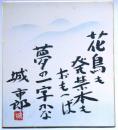 花鳥も
発禁本も
おもへば
夢の一字かな
城市郎